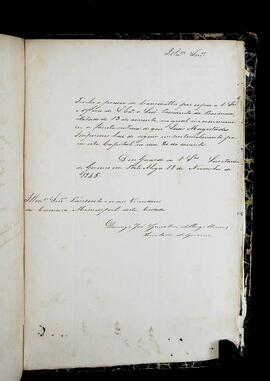 Illmos Snrs
Tenho a pres de transmittir por copia a V. Sas
o officio de S. Exa o Snr Presidente da Provincia
datado de 13 do corrente, no qual
a fausta noticia de que Suas Magestades
Imperiaes hão de seguir
para esta Capital no dia 20 do corrente
Deos Guarde a V. Sas Secretaria
do Governo em Porto Alegre 18 de Novembro de
1845.
Illmos Snrs Presidente e mais Vereadores
da Camara Municipal desta Cidade
José Gonçalves de Magalhaens
Secretario do Governo